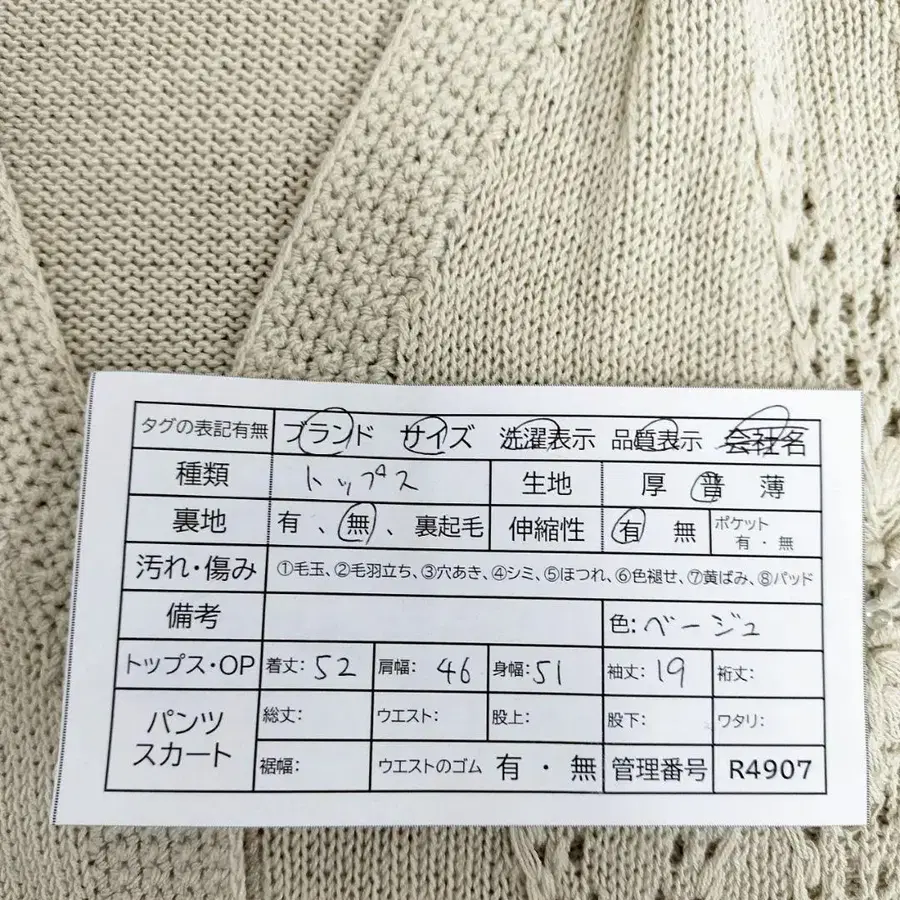 タグの表記有無 ブランド サイズ 洗濯表示 品質表示 会社名
種類 トップス 生地 厚 普 薄
裏地 有 、無 、裏起毛 伸縮性 有 無 ポケット 有・無
汚れ・傷み ①毛玉、②毛羽立ち、③穴あき、④シミ、⑤ほつれ、⑥色褪せ、⑦黄ばみ、⑧パッド
備考 色: ベージュ
トップス・OP 着丈: 52 肩幅: 46 身幅: 51 袖丈: 19 裄丈:
パンツ スカート 総丈: ウエスト: 股上: 股下: ワタリ:
裾幅: ウエストのゴム 有 ・ 無 管理番号 R4907